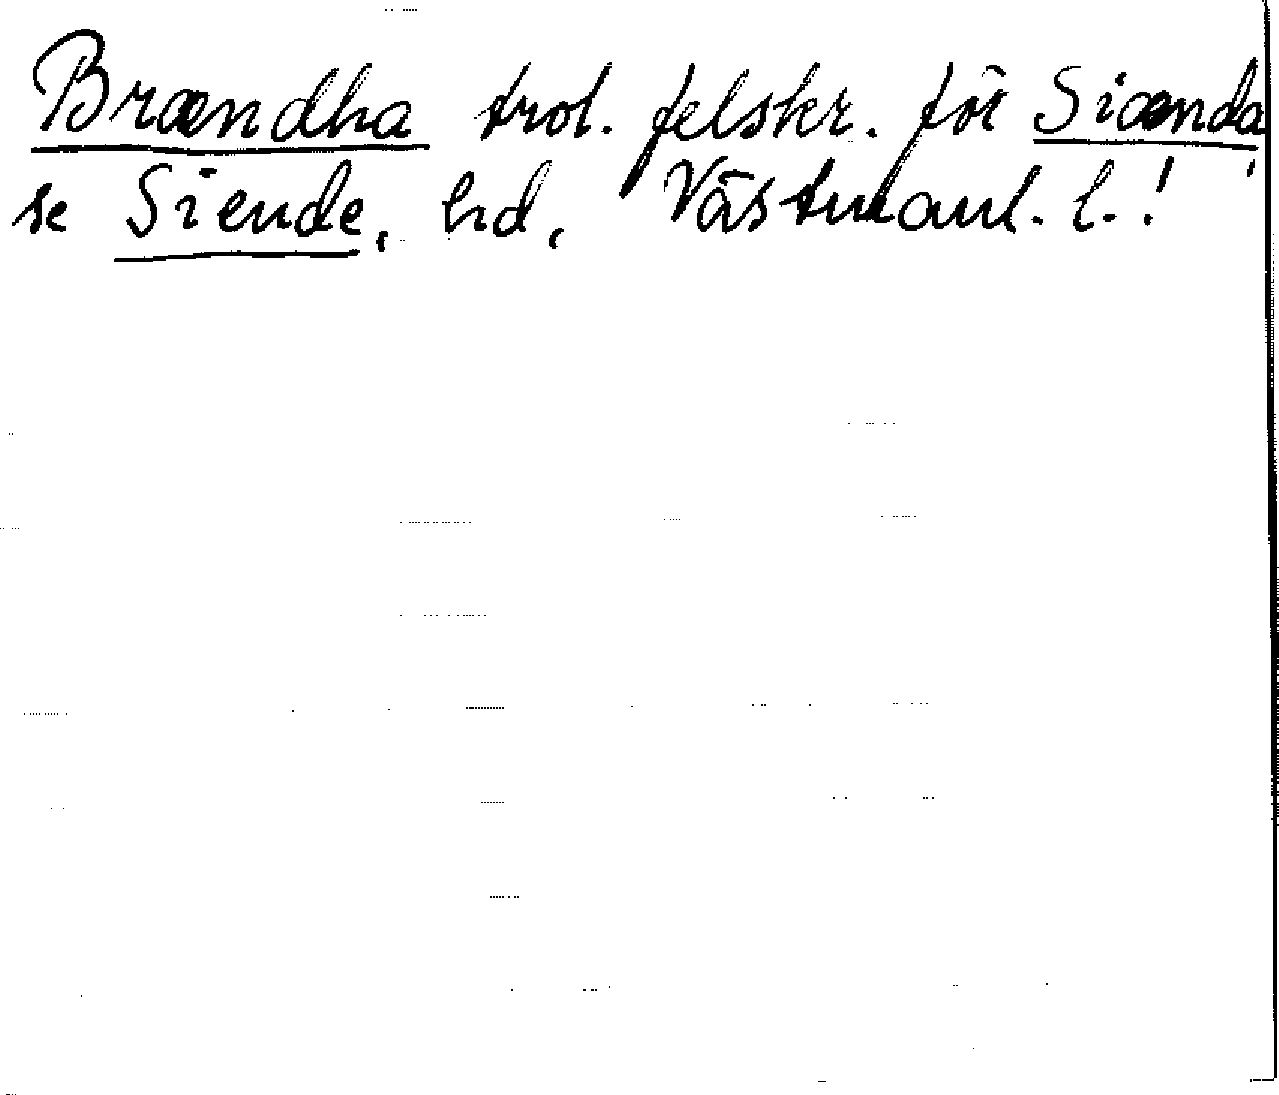 Brændha trol. felskr. för Siænda,
se Siende, hd, Västmanl. l.!